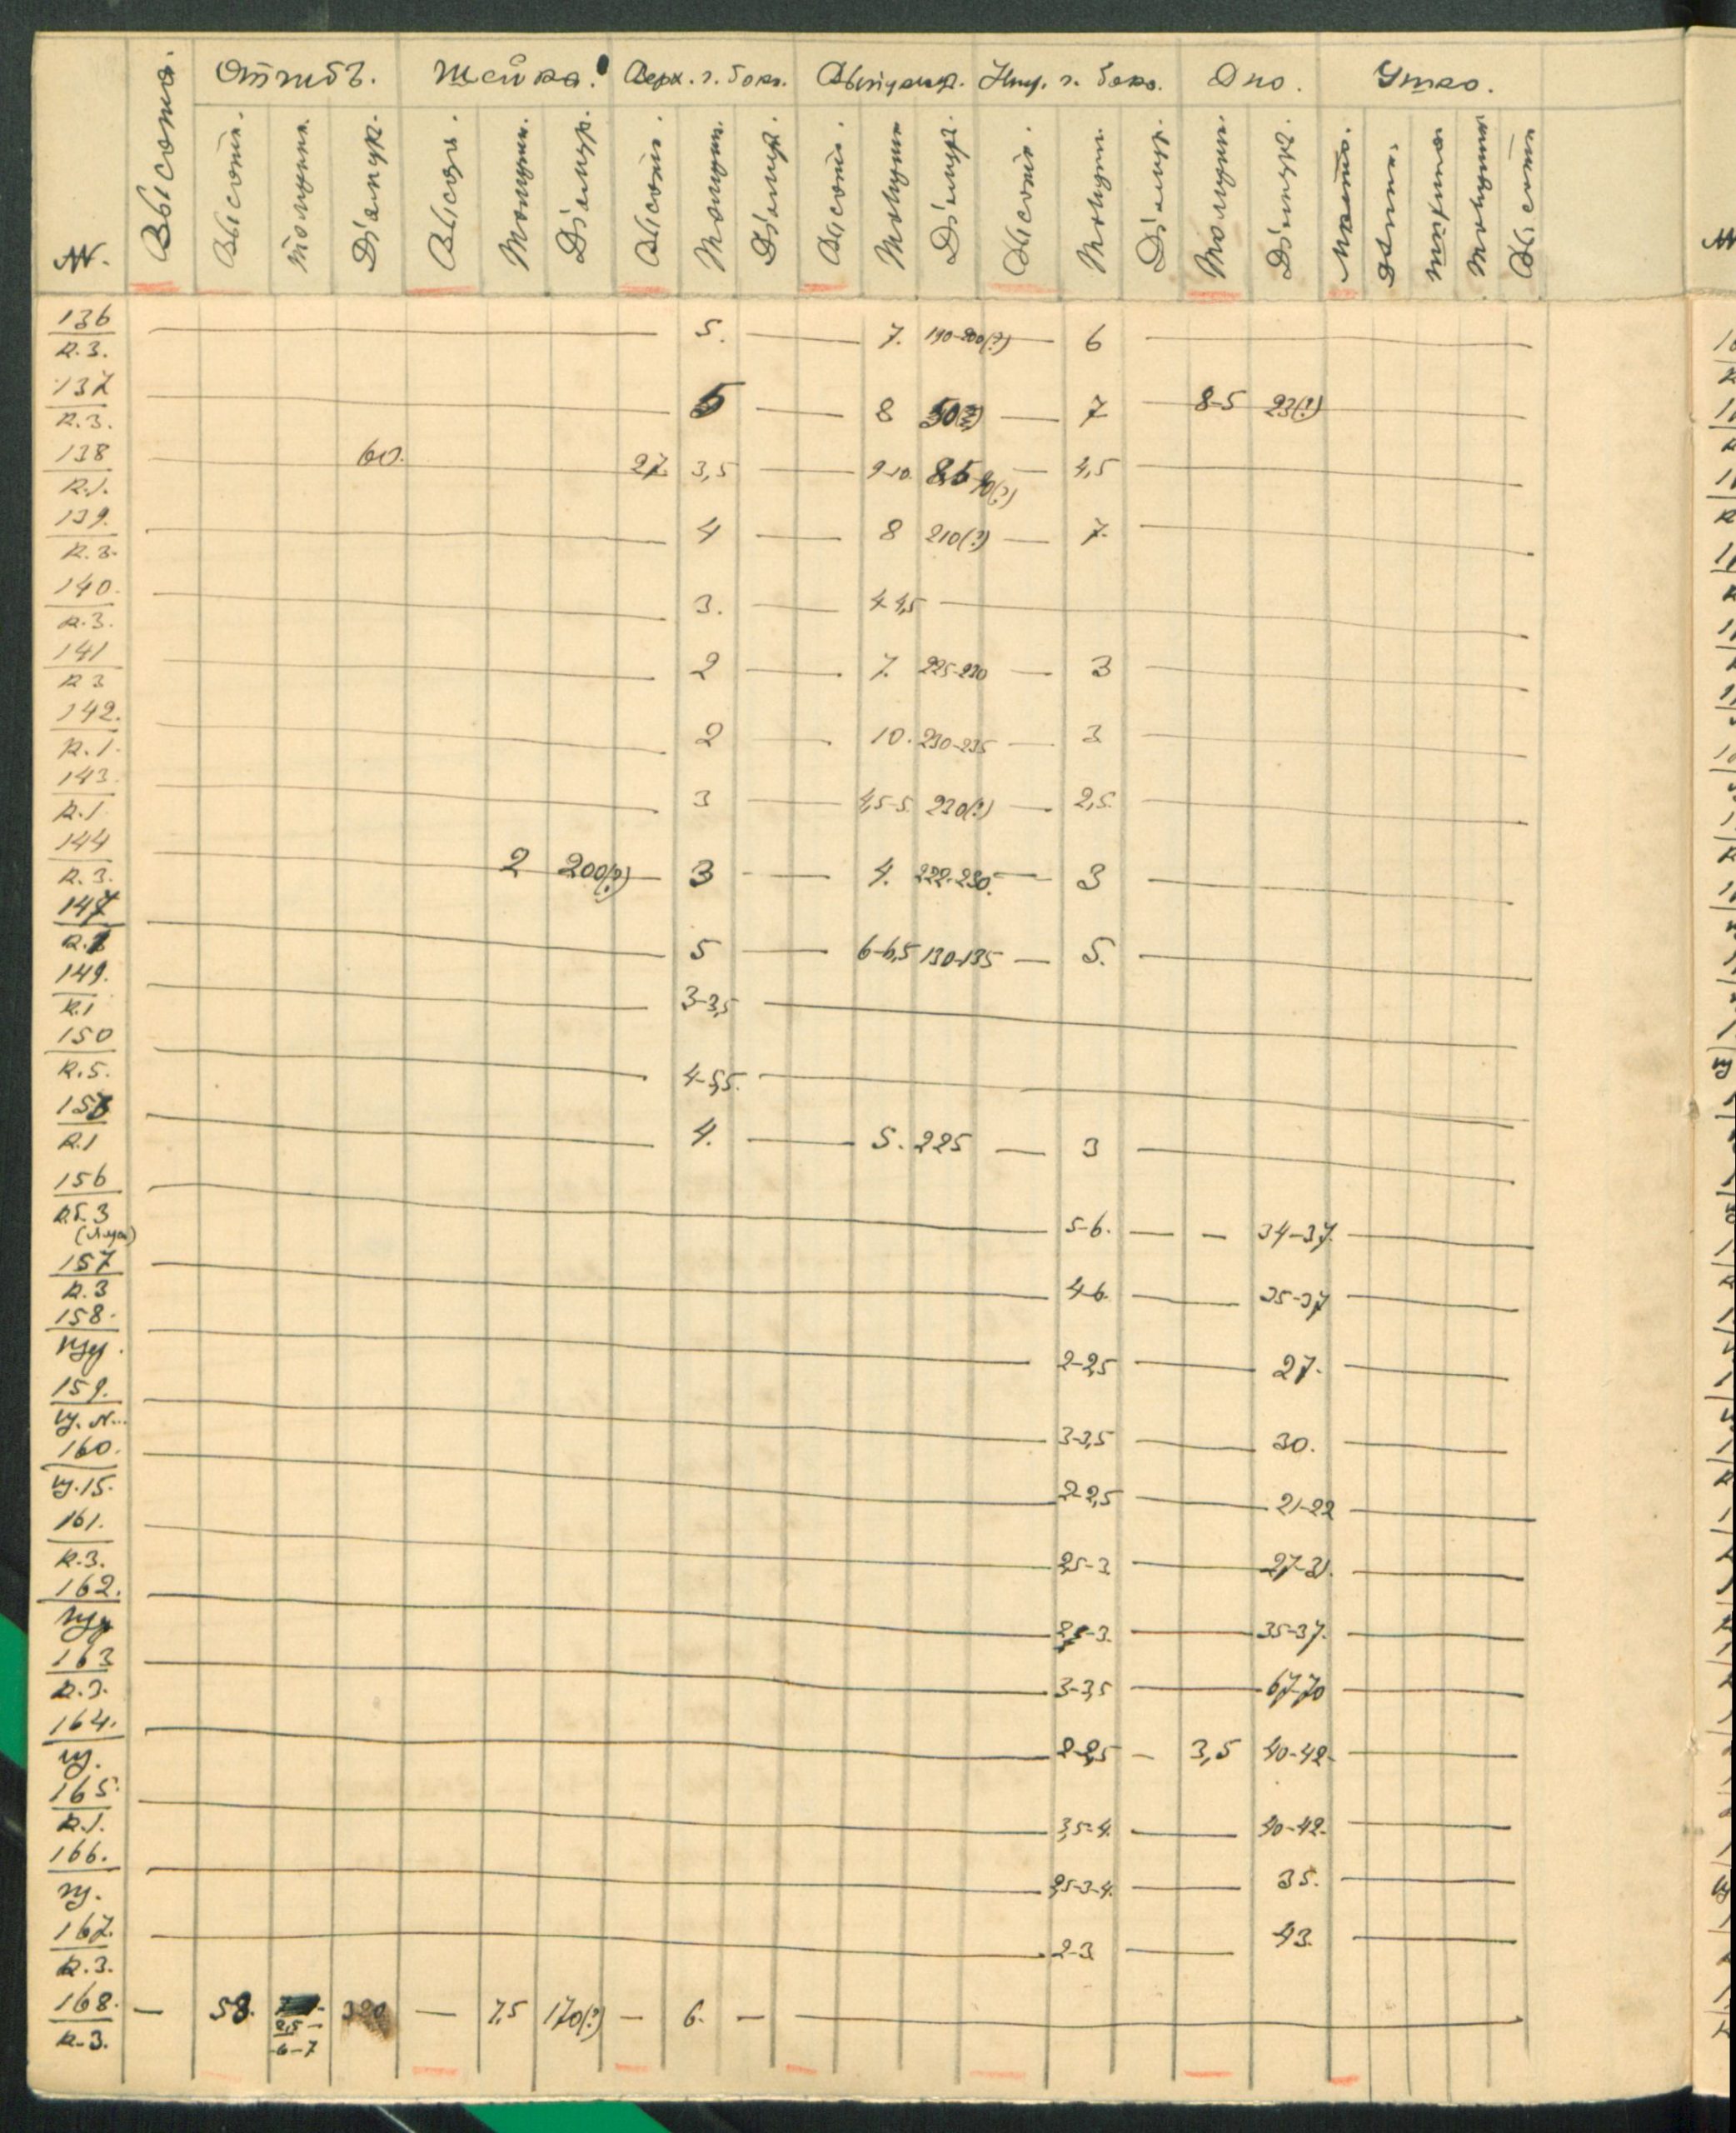 Отгибъ. Шейка. Верх. г. бока. Выпукл. Ниж. г. бока. Дно. Ушко.
№№. Высота. Высота. Толщин. Діаметр. Высота. Толщин. Діаметр. Высота. Толщин. Діаметр. Высота. Толщин. Діаметр. Высота. Толщин. Діаметр. Толщин. Діаметр. Толщин. Высота
136 5. 7. 190-200(?) 6
к.3.
137 5 8 50(?) 7 8-5 23(?)
к.3.
138 60. 27. 3,5 9-10. 85 90(?) 4,5
к.1.
139. 4 8 210(?) 7.
к.3.
140. 3. 4-4,5
к.3.
141 2 7. 225-230 3
к 3
142. 2 10. 230-235 3
к.1.
143. 3 4,5-5. 230(?) 2,5.
к.1
144 2 200(?) 3 4. 222-230. 3
к.3.
147 5 6-6,5 130-135 5.
149. 3-3,5
к.1
150 4-5,5.
к.5.
4. 5. 225 3
к.1
156 5-6. - 34-37.
к.5.3
157 4-6. 35-37
к.3
158. 2-2,5 27.
159. 3-3,5 30.
160. 2-2,5 21-22
щ.15.
161. 2,5-3 27-31.
к.3.
162. 2,5-3. 35-37.
163 3-3,5 67-70
к.3.
164. 2-2,5 - 3,5 40-42-
щ.
165. 3,5-4. 40-42.
к.1.
166. 2,5-3-4. 35.
щ.
167. 2-3 43.
к.3.
168. - 58. 2,5- 320 - 7,5 170(?) - 6. -
к.3. 6-7